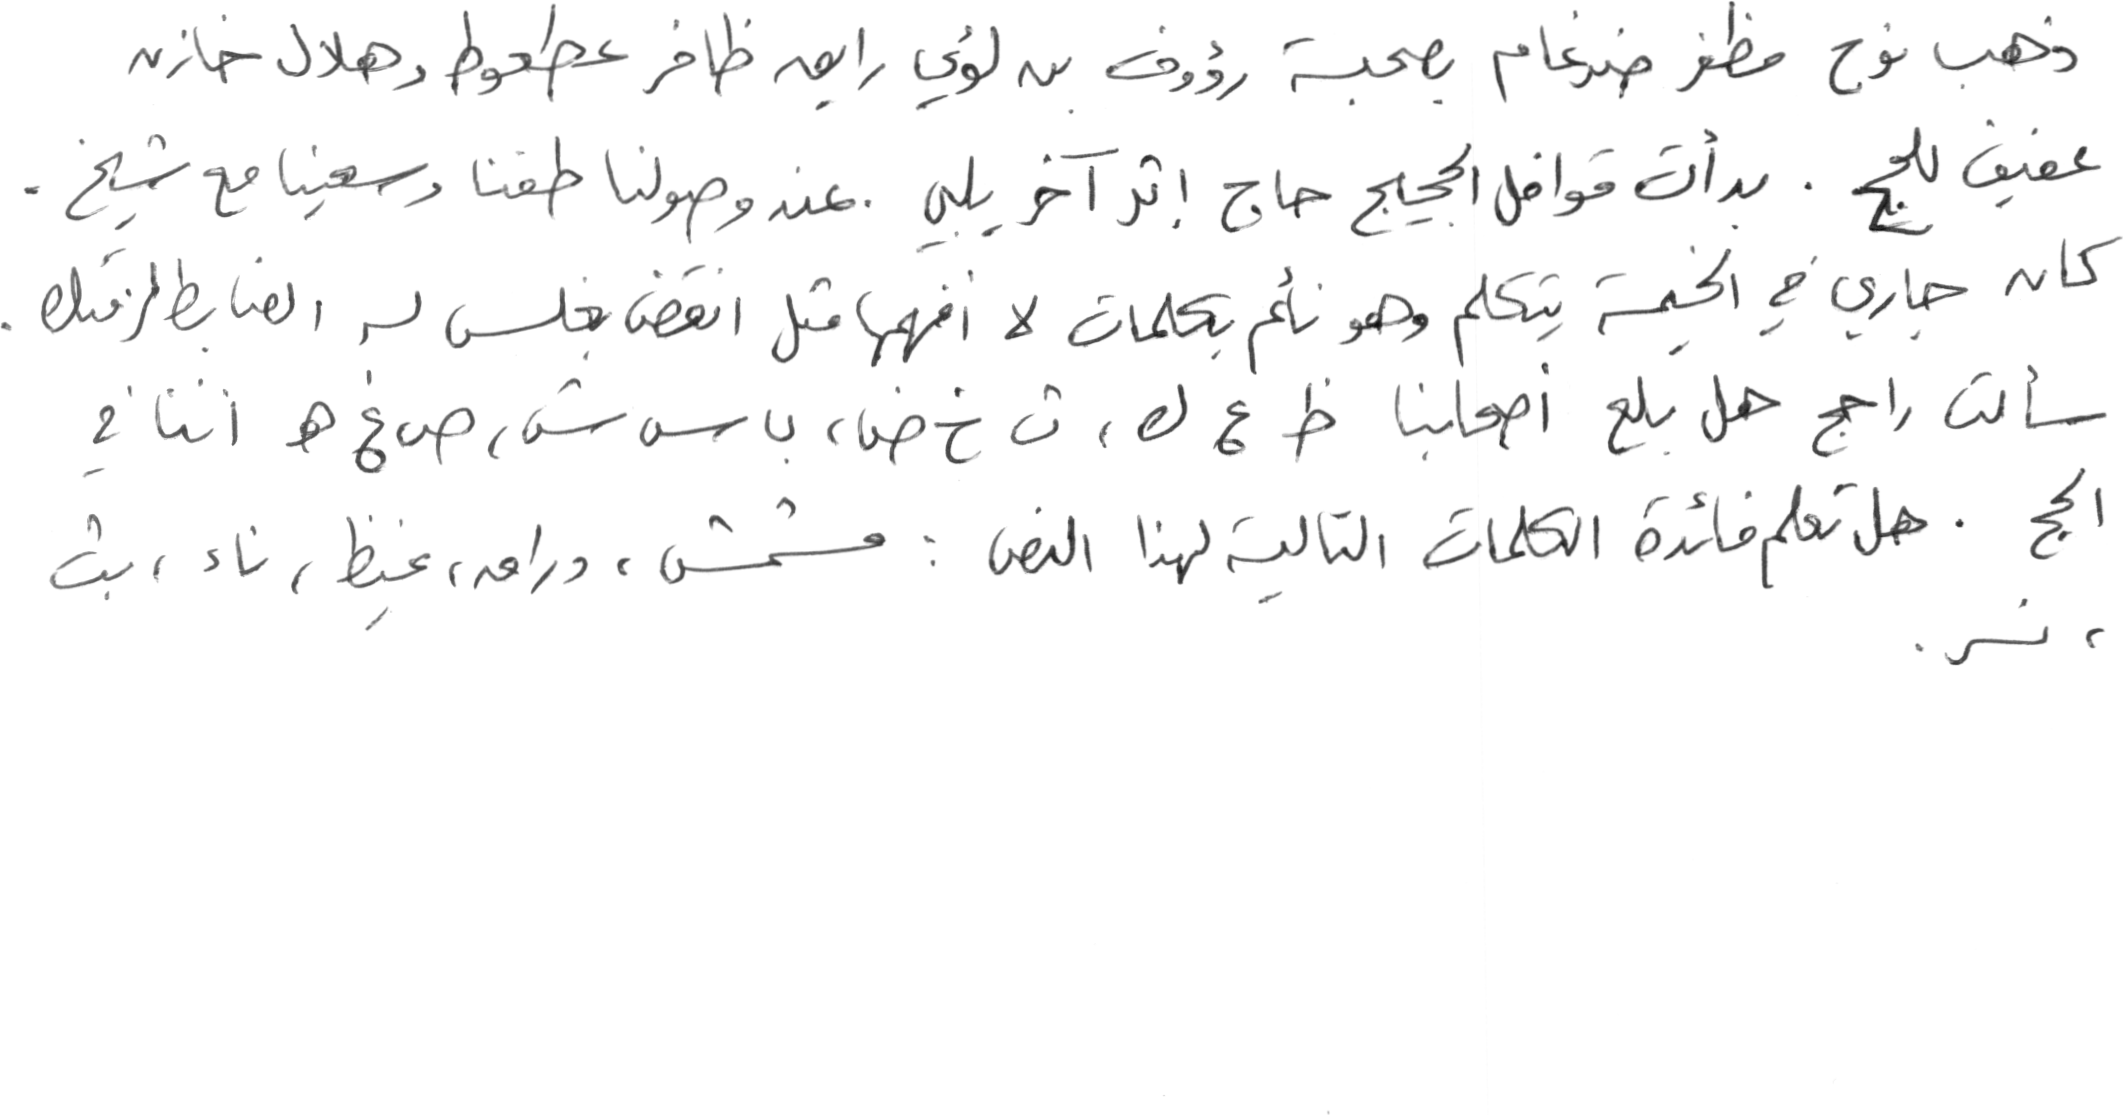 ذهب نوح مظفر ضرغام بصحبة رؤوف بن لؤي رابص ظافر عطعوط وهلال خازن
عفيف للحج . بدأت قوافل الحجيج حاج إثر آخر يلبي . عند وصولنا طفنا وسعينا مع شيخ .
كان جاري في الخيمة يتكلم وهو نائم بكلمات لا أفهمها مثل انقض بغلس له الضابط لزقتك .
سألت راجح هل بلع أصحابنا ظ ع ك ، ث خ ض ، ب س ش ، ص غ هـ اثنا في
الحج . هل تعلم فائدة الكلمات التالية لهذا النص : مشمش ، دراهم ، غيظ ، ناء ، بث
، نسر .